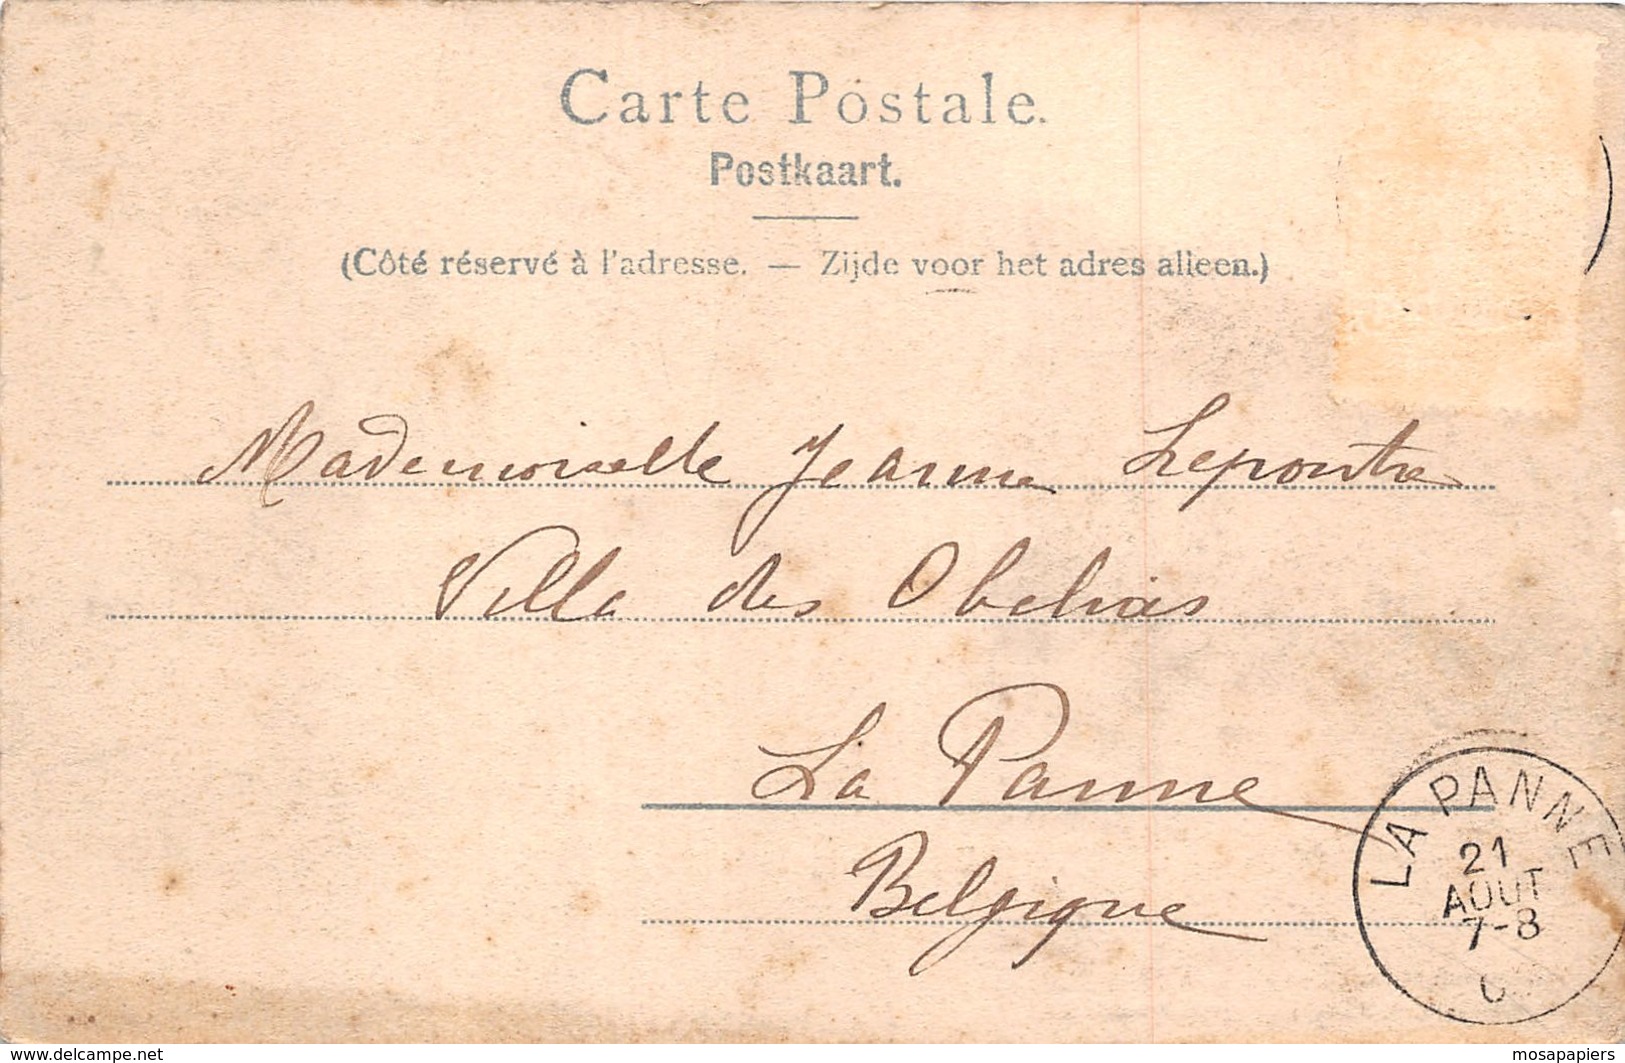 Carte Postale.
Postkaart.
(Côté réservé à l'adresse. — Zijde voor het adres alleen.)
Mademoiselle Jeanne Lepoutre
Villa des
La Panne
Belgique
LA PANNE
21
AOUT
7-8
www.delcampe.net
mosapapiers